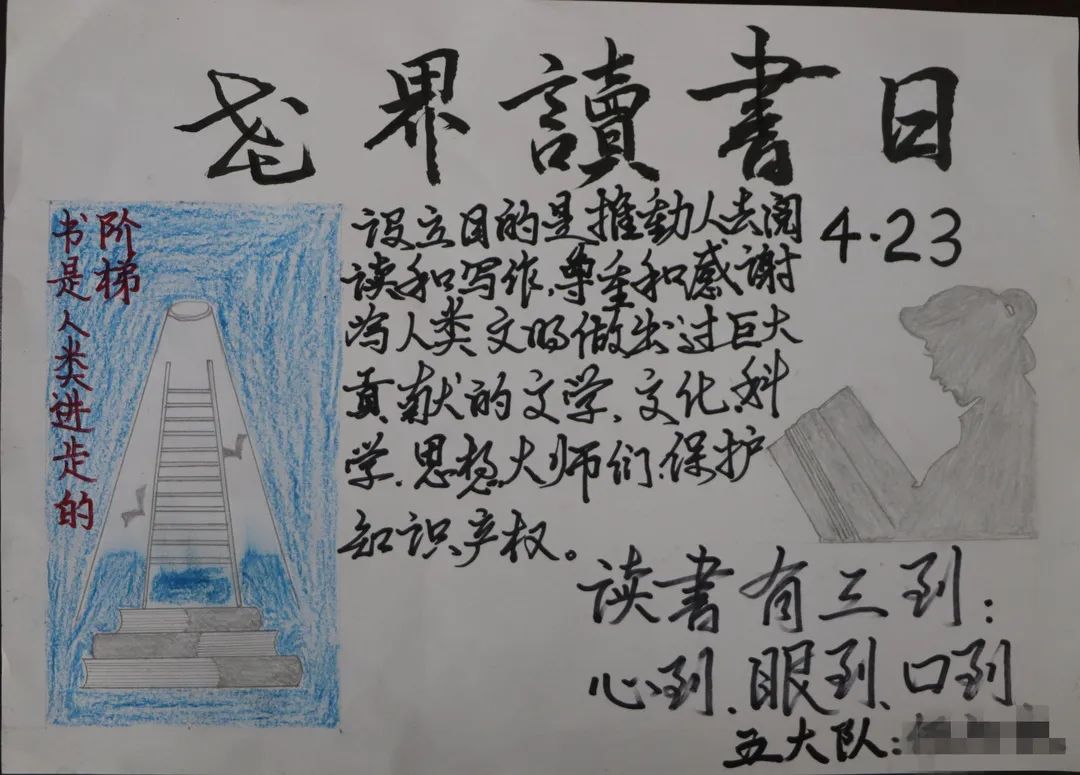 世界讀書日
4·23
书是人类进步的
阶梯
设立目的是推動人去阅
读和写作,尊重和感谢
为人类文明做出过巨大
贡献的文学、文化、科
学、思想大师们、保护
知识产权。
读書有三到:
心到、眼到、口到
五大队: